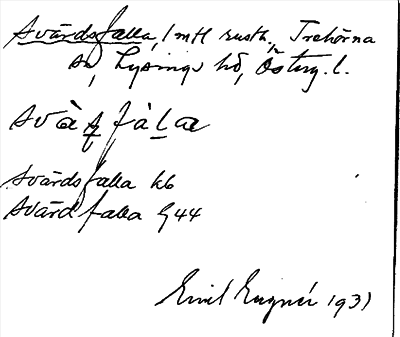 Svärdsfalla, 1 mtl rusth., Trehörna
sn, Lysings hd, Österg. l.
svä̀ʂfàla
Svärdsfalla kb
Svärdfalla G44
Emil Eugnér 1931